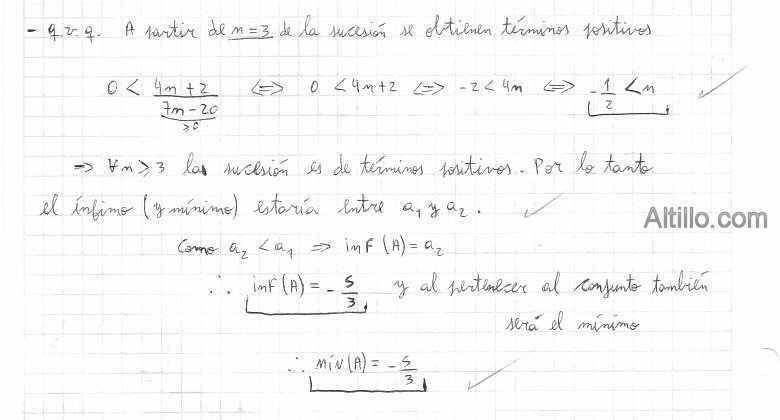 - q.v.q. A partir de n=3 de la sucesión se obtienen términos positivos
0 < (4n+2)/(7n-20) ⇔ 0 < 4n+2 ⇔ -2 < 4n ⇔ -1/2 < n ✓
≥0
⇒ ∀n ≥ 3 la sucesión es de términos positivos. Por lo tanto
el ínfimo (y mínimo) estaría entre a₁ y a₂. ✓
Altillo.com
Como a₂ < a₁ ⇒ inf (A) = a₂
∴ inf (A) = -5/3 y al pertenecer al conjunto también
será el mínimo
∴ mín (A) = -5/3 ✓